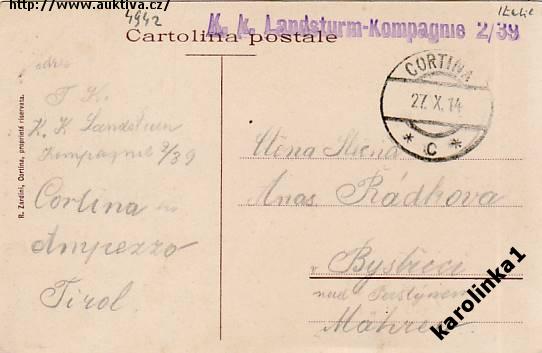 https://www.auktiva.cz/
4942
Italie
K. k. Landsturm-Kompagnie 2/39
Cartolina postale
CORTINA
27.X.14
* C *
R. Zardini, Cortina, proprietà riservata.
adres
T. K.
K. K. Landsturm
Kompagnie 2/39
Cortina
Ampezzo
Tirol
Ctěná Slečna
Anas. Rádkova
v Bystřici
nad
Mähren
karolinka1